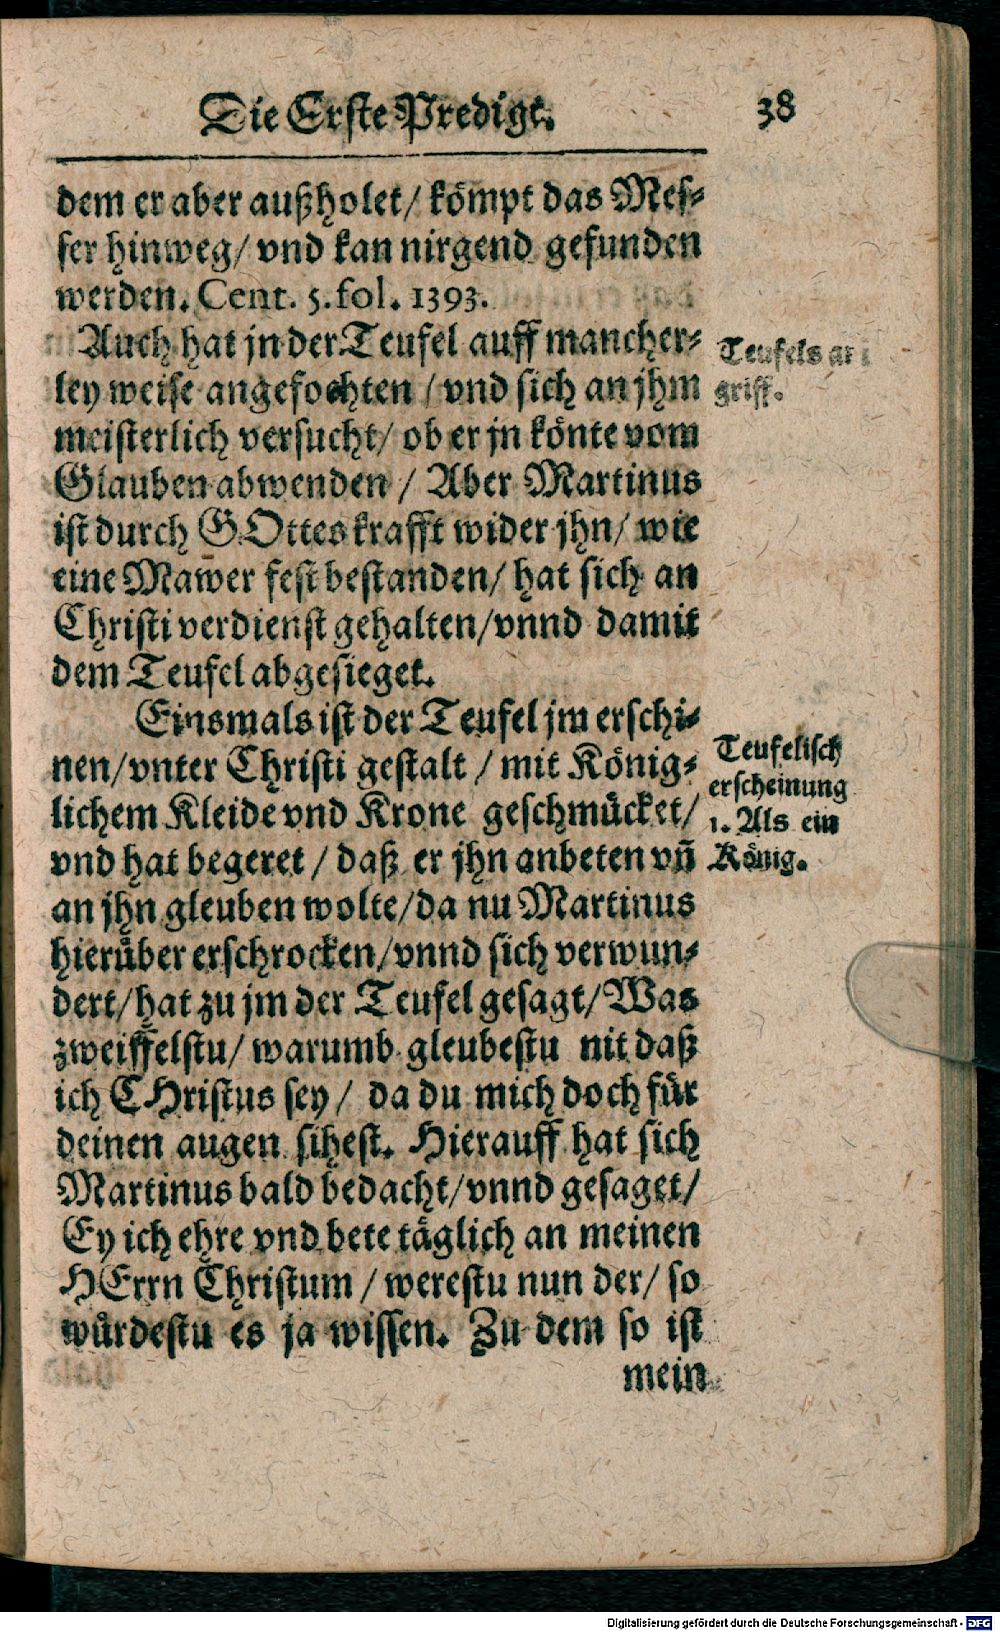 Die Erste Predigt.
38
dem er aber außholet/ kömpt das Mes-
ser hinweg/ vnd kan nirgend gefunden
werden. Cent. 5. fol. 1393.
Auch hat jn der Teufel auff mancher-
ley weise angefochten / vnd sich an jhm
meisterlich versucht/ ob er jn könte vom
Glauben abwenden / Aber Martinus
ist durch GOttes krafft wider jhn/ wie
eine Maw̃er fest bestanden/ hat sich an
Christi verdienst gehalten/ vnnd damit
dem Teufel abgesieget.
Teufels an
griff.
Einsmals ist der Teufel jm erschi-
nen/ vnter Christi gestalt / mit König-
lichem Kleide vnd Krone geschmücket/
vnd hat begeret / daß er jhn anbeten vñ
an jhn gleuben wolte/ da nu Martinus
hierüber erschrocken/ vnnd sich verwun-
dert/ hat zu jm der Teufel gesagt/ Was
zweiffelstu/ warumb gleubestu nit daß
ich CHristus sey / da du mich doch für
deinen augen sihest. Hierauff hat sich
Martinus bald bedacht/ vnnd gesaget/
Ey ich ehre vnd bete täglich an meinen
HErrn Christum / werestu nun der/ so
würdestu es ja wissen. Zu dem so ist
mein
Teufelisch
erscheinung
1. Als ein
König.
Digitalisierung gefördert durch die Deutsche Forschungsgemeinschaft - DFG